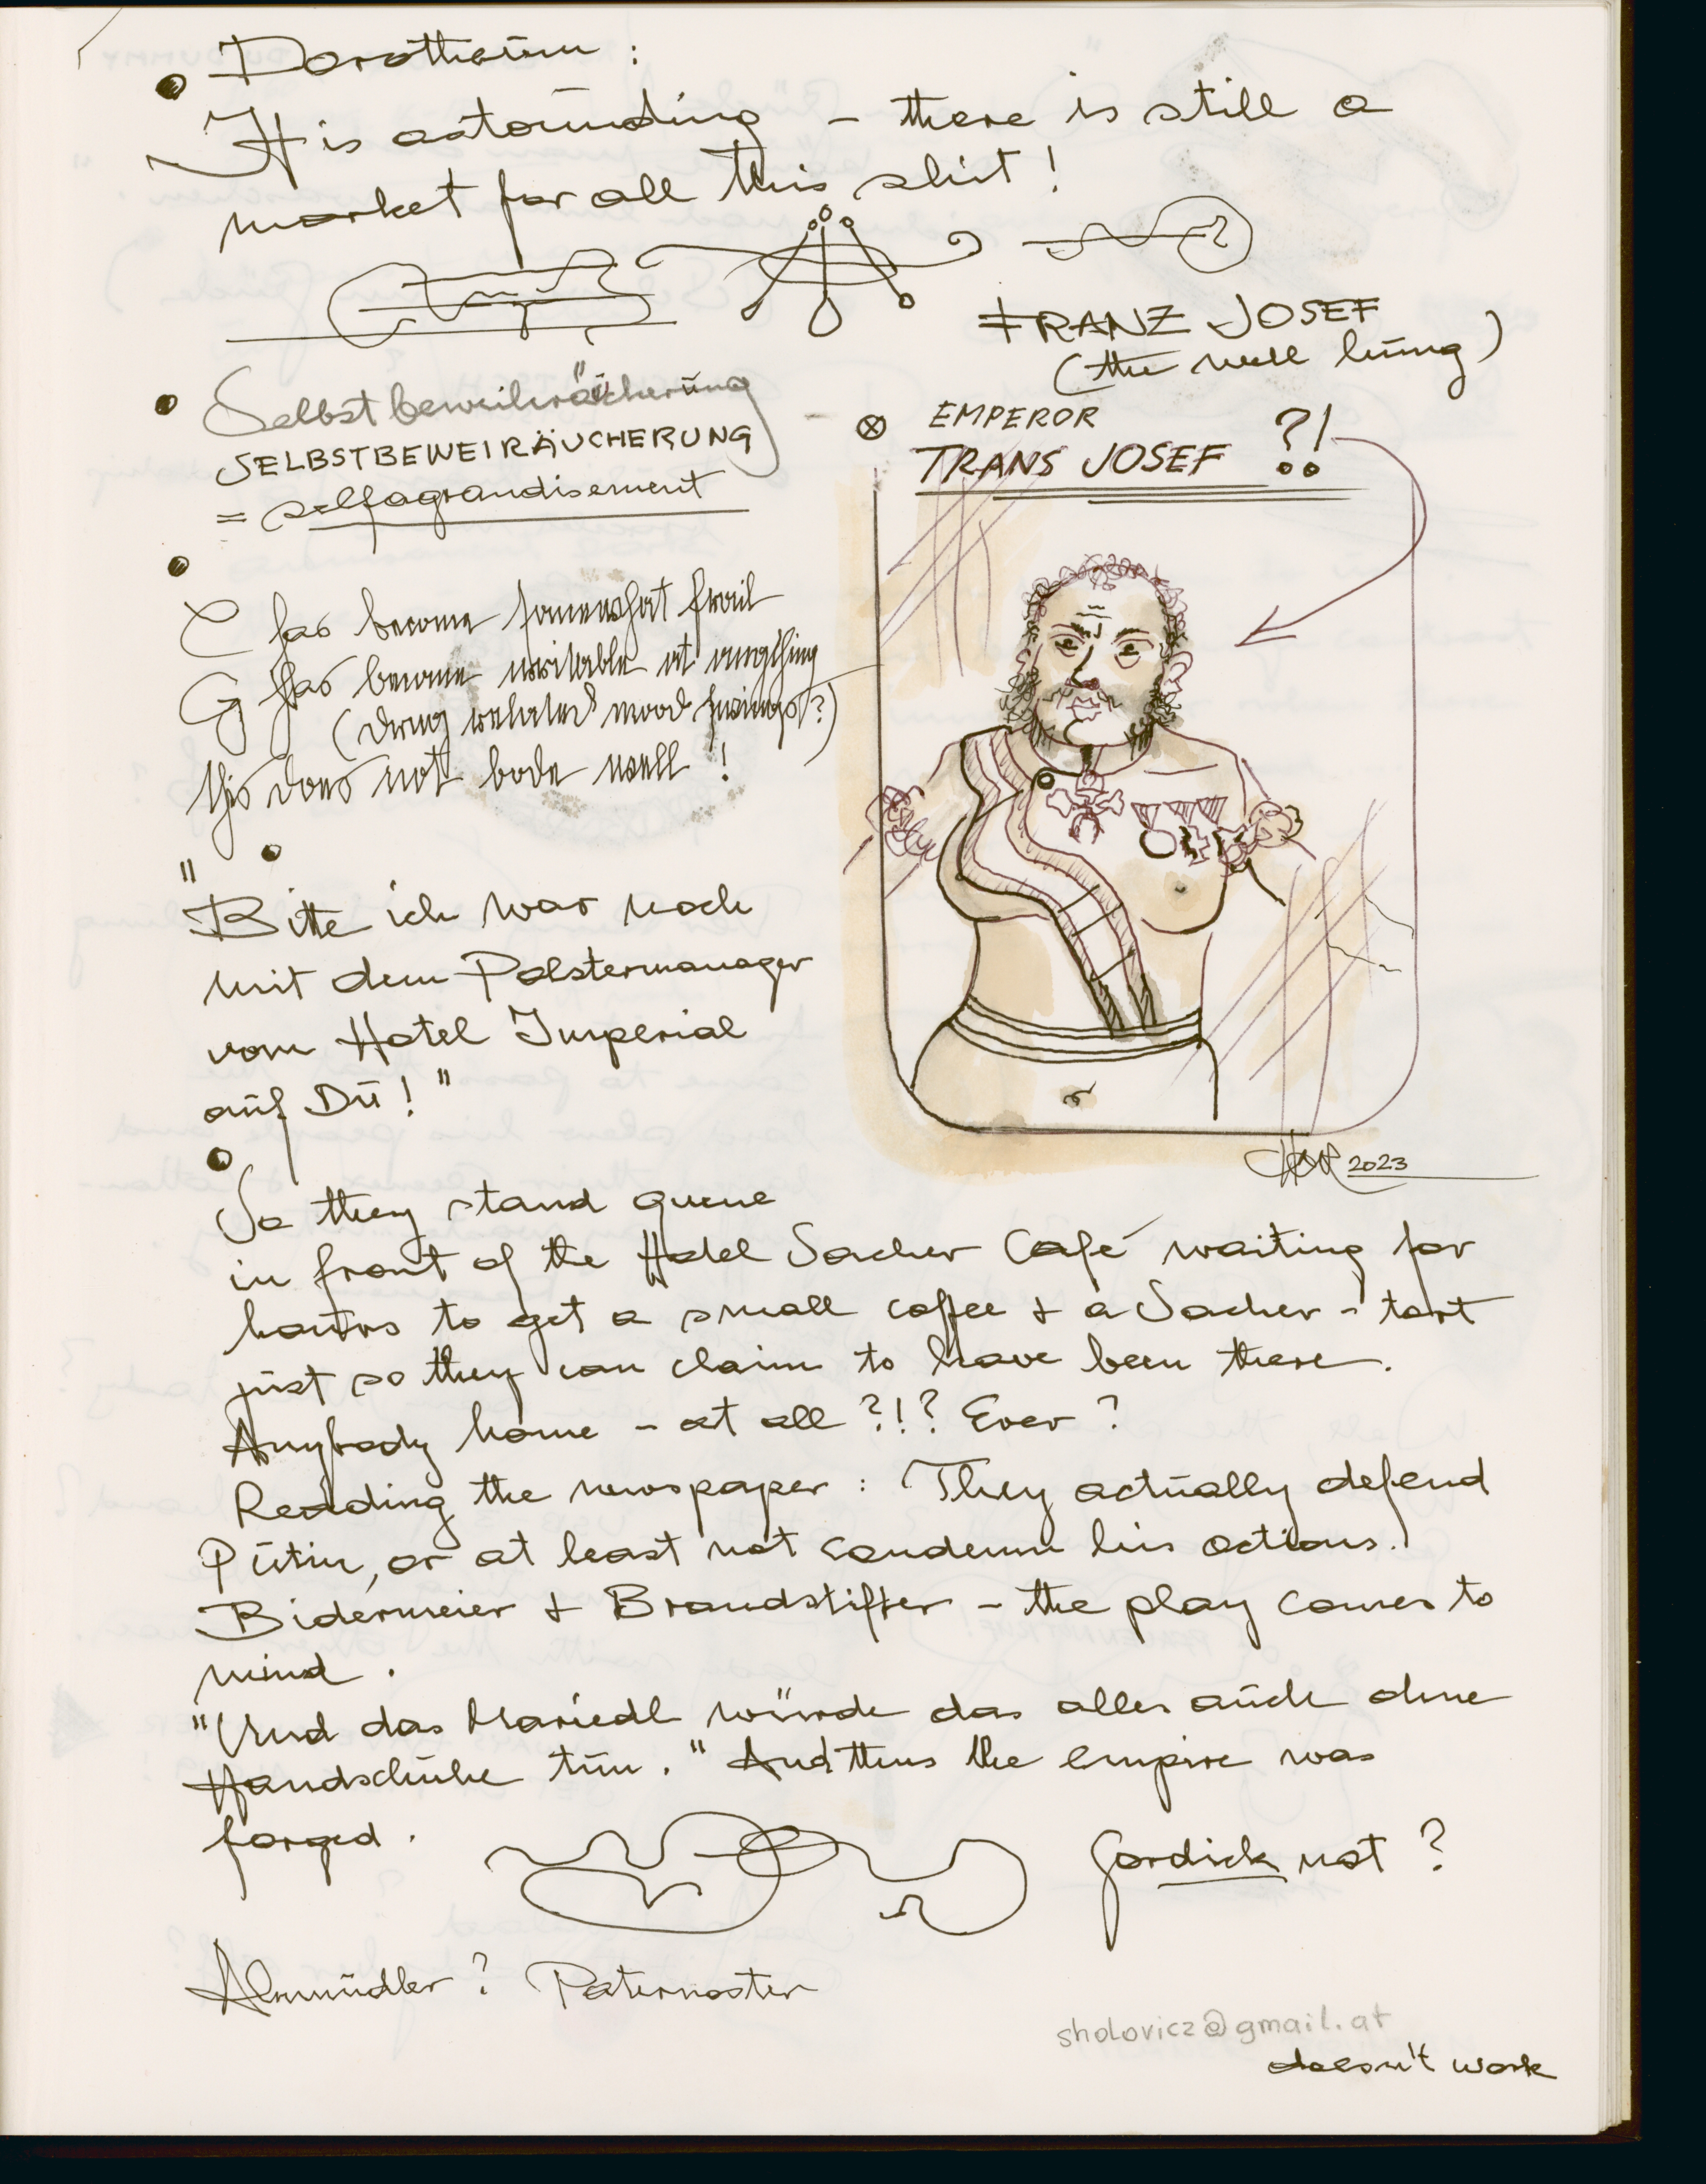 Dorotheum :
It is astounding – there is still a
market for all this shit !
FRANZ JOSEF
(the well hung)
Selbstbeweihräucherung
SELBSTBEWEIRÄUCHERUNG
= selfagrandisement
EMPEROR
TRANS JOSEF ?!
C has become somewhat frail
G has become irritable at anything
(drug related mood swings?)
this does not bode well !
"Bitte ich war noch
mit dem Polstermanager
vom Hotel Imperial
auf Du ! "
2023
So they stand queue
in front of the Hotel Sacher Café waiting for
hours to get a small coffee + a Sacher-tart
just so they can claim to have been there.
Anybody home – at all ?!? Ever ?
Reading the newspaper : They actually defend
Putin, or at least not condemn his actions.
Bidermeier + Brandstifter – the play comes to
mind .
"Und das Mariedl würde das alles auch ohne
Handschuhe tun. " And thus the empire was
forged .
Gordick not ?
Almüdler ? Paternoster
sholovicz@gmail.at
doesn't work